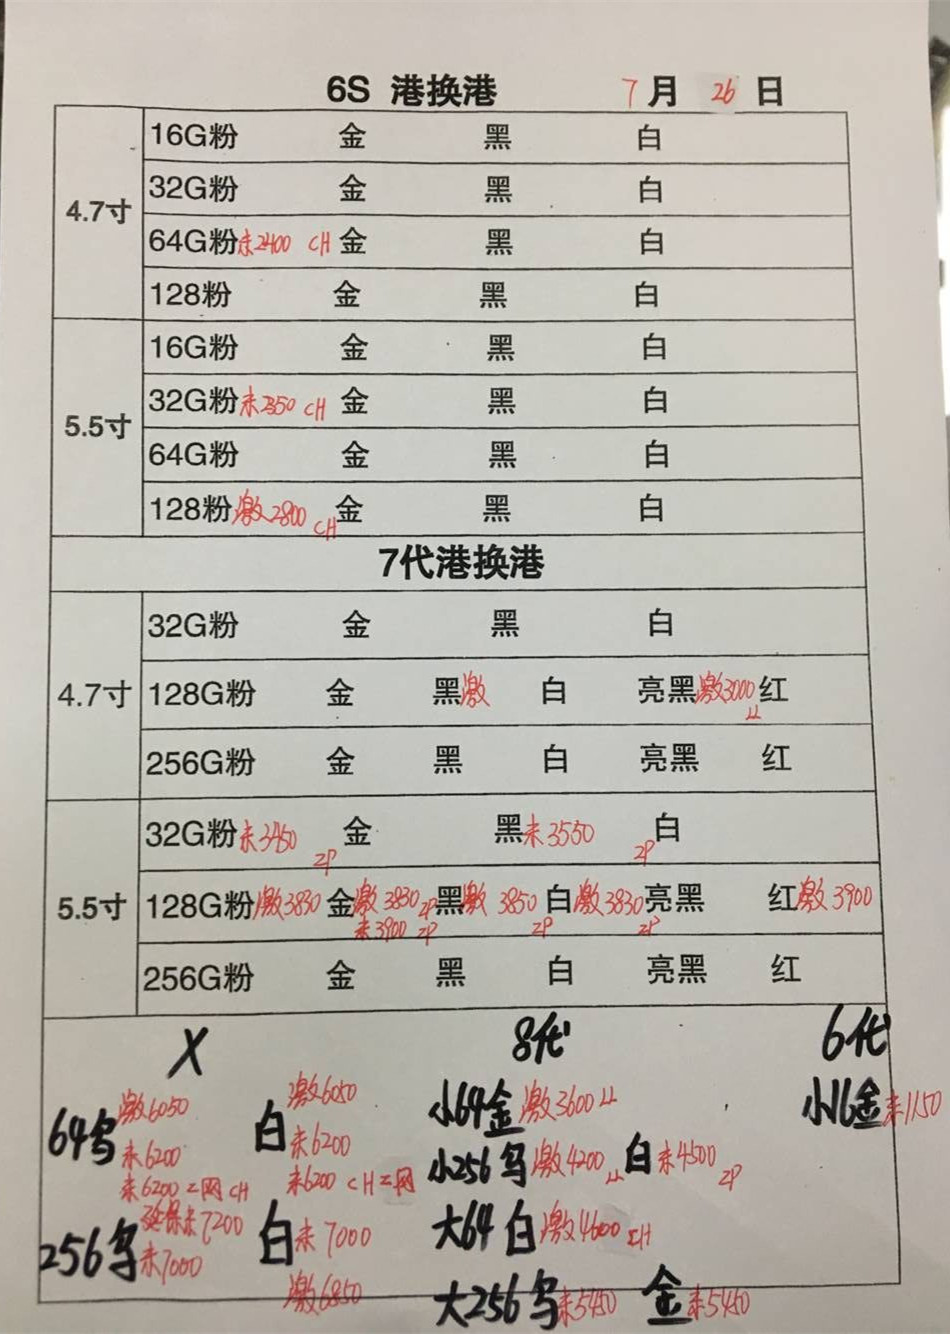 6S 港换港 7月26日
4.7寸
16G粉 金 黑 白
32G粉 金 黑 白
64G粉 未2400 CH 金 黑 白
128粉 金 黑 白
5.5寸
16G粉 金 黑 白
32G粉 未2350 CH 金 黑 白
64G粉 金 黑 白
128粉 激2800 CH 金 黑 白
7代港换港
4.7寸
32G粉 金 黑 白
128G粉 金 黑激 白 亮黑激3000 LL 红
256G粉 金 黑 白 亮黑 红
5.5寸
32G粉未3450 ZP 金 黑未3550 ZP 白
128G粉激3830 金激3830 ZP 黑激3850 ZP 白激3830 ZP 亮黑 红激3900
未3900 ZP
256G粉 金 黑 白 亮黑 红
X
64乌 激6050 白 激6050
未6200 未6200
未6200 二网 CH 未6200 CH 二网
256乌 延保未7200 白 未7000
未7000 激6850
8代
小64金 激3600 LL
小256乌 激4200 LL 白 未4500 ZP
大64白 激4600
大256乌 未5450 金 未5450
6代
小16金 未1150